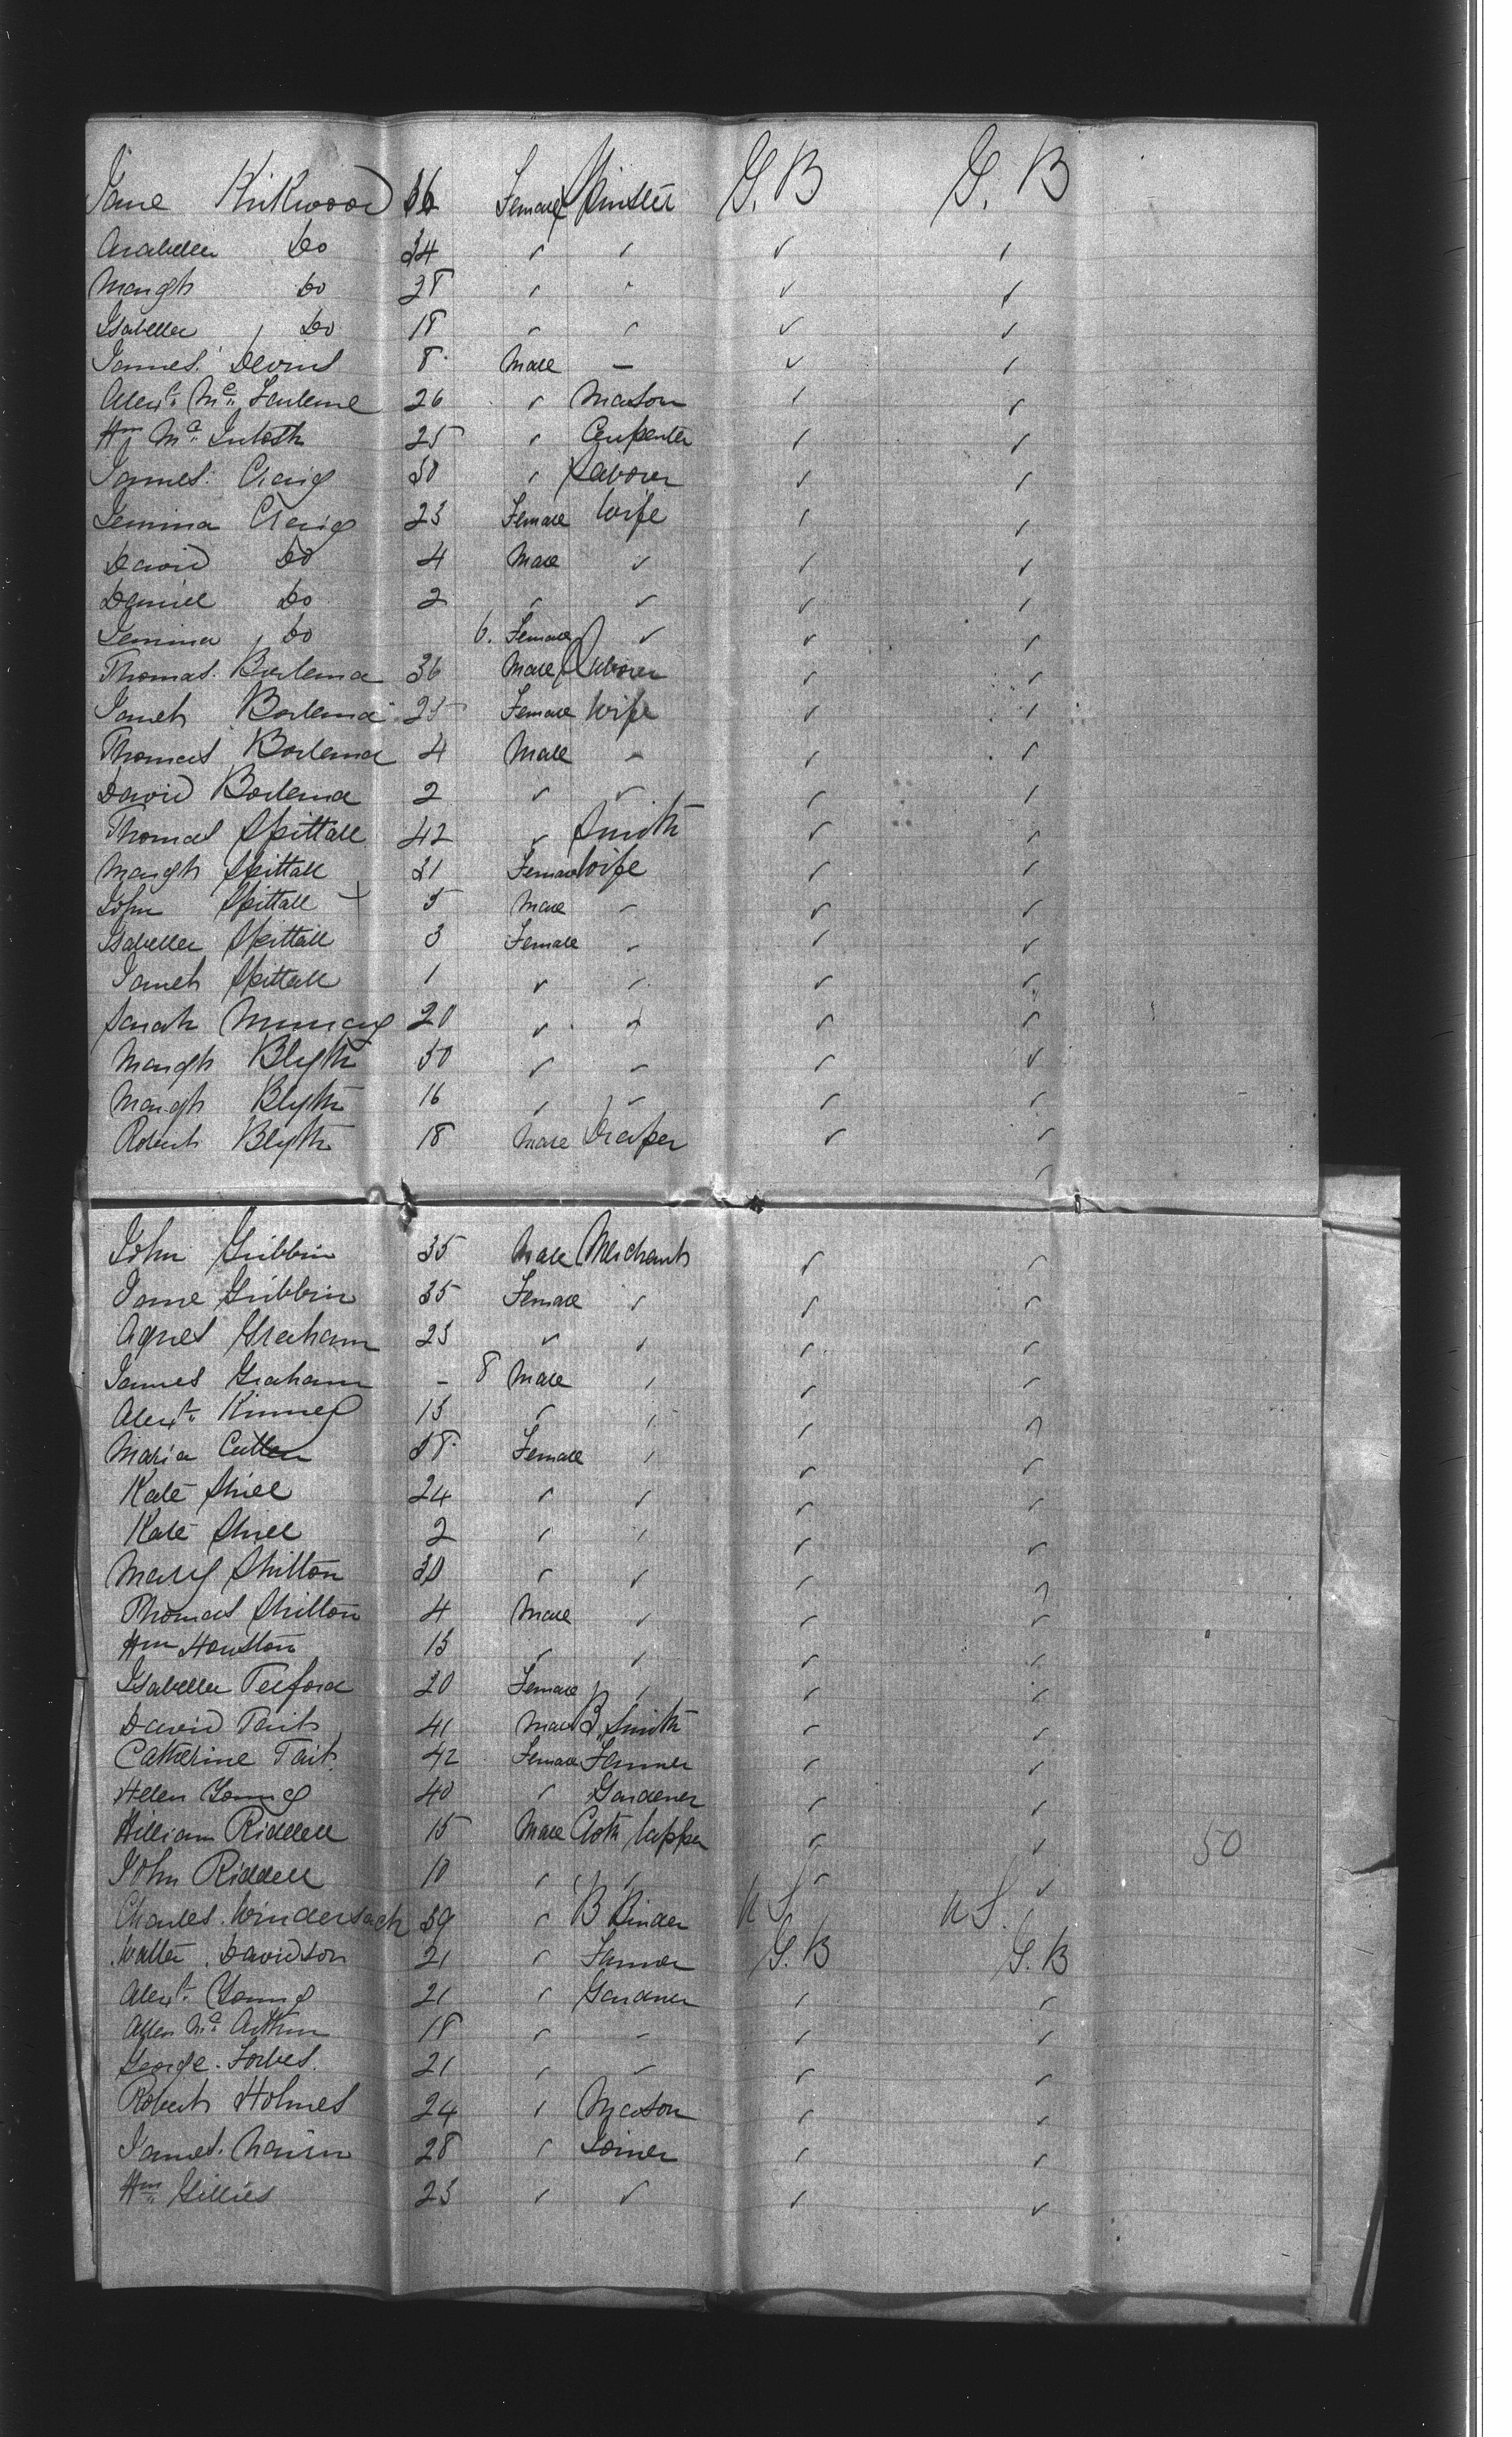 Jane Kirkwood 36 Female Spinster G. B G. B
Arabella Do 34 " " " "
Margt Do 28 " " " "
Isabella Do 18 " " " "
James Devins 8 Male – " "
Alexr. Mc. Farlane 26 " Mason " "
Wm Mc. Intosh 25 " Carpenter " "
James Craig 30 " Laborer " "
Jemima Craig 23 Female Wife " "
David Do 4 Male " " "
Daniel Do 2 " " " "
Jemima Do 6. Female " " "
Thomas Borland 36 Male Laborer " "
Janet Borland 25 Female Wife " "
Thomas Borland 4 Male " " "
David Borland 2 " " " "
Thomas Spittall 42 " Smith " "
Margt Spittall 31 Female Wife " "
John Spittall 5 Male " " "
Isabella Spittall 3 Female " " "
Janet Spittall 1 " " " "
Sarah Murray 20 " " " "
Margt Blyth 50 " " " "
Margt Blyth 16 " " " "
Robert Blyth 18 Male Draper " "
John Gribbin 35 Male Merchant " "
Jane Gribbin 35 Female " " "
Agnes Graham 23 " " " "
James Graham – 8 Male " " "
Alexr. Kinney 13 " " " "
Maria Cullen 38 Female " " "
Kate Shiel 24 " " " "
Kate Shiel 2 " " " "
Mary Shilton 30 " " " "
Thomas Shilton 4 Male " " "
Wm Houston 13 " " " "
Isabella Telford 20 Female " " "
David Tait 41 Male B. Smith " "
Catherine Tait 42 Female Farmer " "
Helen Young 40 " Gardener " "
William Riddell 15 Male Cloth lapper " " 50
John Riddell 10 " " " "
Charles 39 " B Binder U S U S.
Walter Davidson 21 " Farmer G. B G. B
Alexr. Young 21 " Gardner " "
Allen Mc. Arthur 18 " " " "
George Forbes 21 " " " "
Robert Holmes 24 " Mason " "
James Nairn 28 " Joiner " "
Wm. Gillies 23 " " " "